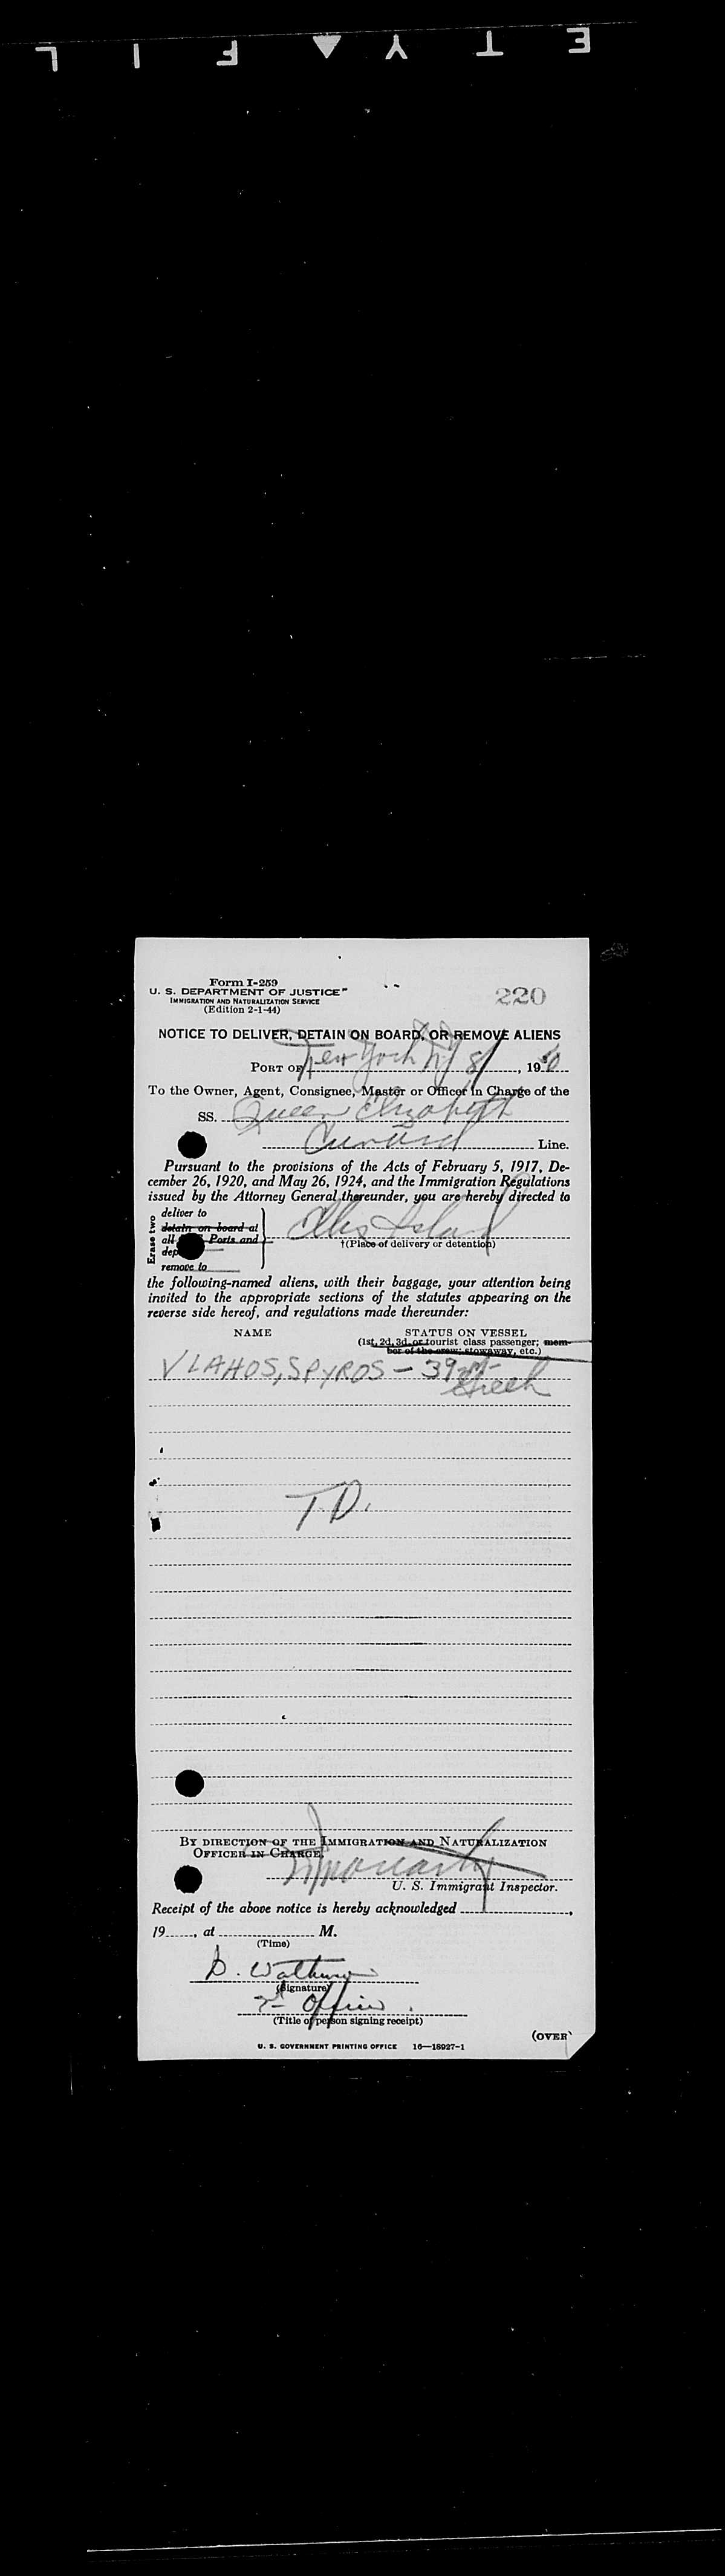 E T Y F I L
Form I-259
U. S. DEPARTMENT OF JUSTICE
IMMIGRATION AND NATURALIZATION SERVICE
(Edition 2-1-44)
220
NOTICE TO DELIVER, DETAIN ON BOARD, OR REMOVE ALIENS
PORT OF New York NY 8/ , 1950
To the Owner, Agent, Consignee, Master or Officer in Charge of the
SS. Queen Elizabeth
Cunard Line.
Pursuant to the provisions of the Acts of February 5, 1917, De-
cember 26, 1920, and May 26, 1924, and the Immigration Regulations
issued by the Attorney General thereunder, you are hereby directed to
Erase two
deliver to
detain on board at
all Ports and
remove to
Ellis Island
†(Place of delivery or detention)
the following-named aliens, with their baggage, your attention being
invited to the appropriate sections of the statutes appearing on the
reverse side hereof, and regulations made thereunder:
NAME STATUS ON VESSEL
(1st, 2d, 3d, or tourist class passenger; mem-
ber of the crew; stowaway, etc.)
VLAHOS, SPYROS - 39 m-
Greek
T.D.
BY DIRECTION OF THE IMMIGRATION AND NATURALIZATION
OFFICER IN CHARGE
U. S. Immigrant Inspector.
Receipt of the above notice is hereby acknowledged ,
19 , at M.
(Time)
D.
(Signature)
(Title of person signing receipt)
(OVER)
U. S. GOVERNMENT PRINTING OFFICE 16—18927-1